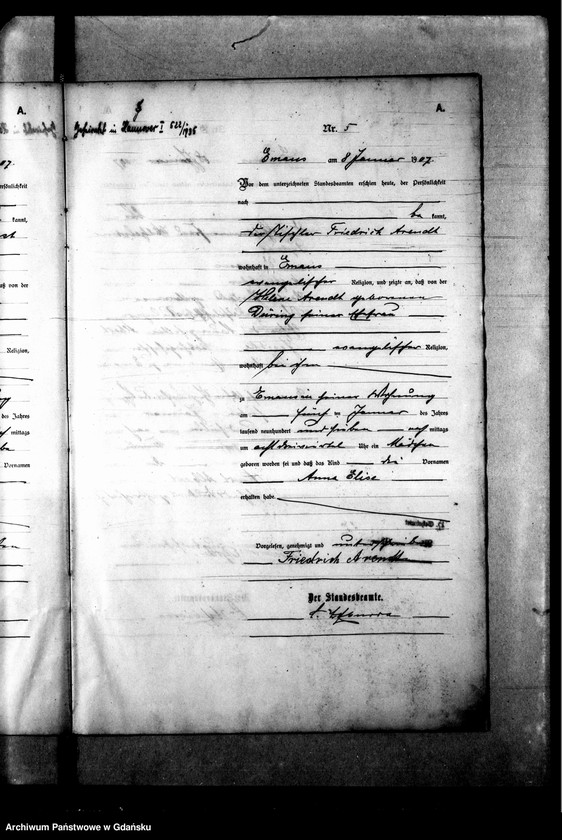 A.
A.
Geheiratet in Hannover I 522/1935
Nr. 5
Emaus am 8 Januar 1907.
Vor dem unterzeichneten Standesbeamten erschien heute, der Persönlichkeit
nach
be kannt,
der Tischler Friedrich Arendt
wohnhaft in Emaus
evangelischer Religion, und zeigte an, daß von der
Helene Arendt geborenen
Düring seiner Ehefrau
evangelischer Religion,
wohnhaft bei ihm
zu Emaus in seiner Wohnung
am fünf ten Januar des Jahres
tausend neunhundert und sieben nach mittags
um acht dreiviertel Uhr ein Mädchen
geboren worden sei und daß das Kind die Vornamen
Anna Elise
erhalten habe.
Vorgelesen, genehmigt und unterschrieben
Friedrich Arendt
Der Standesbeamte.
07.
ersönlichkeit
kannt,
daß von der
Religion,
des Jahres
mittags
Vornamen
Archiwum Państwowe w Gdańsku